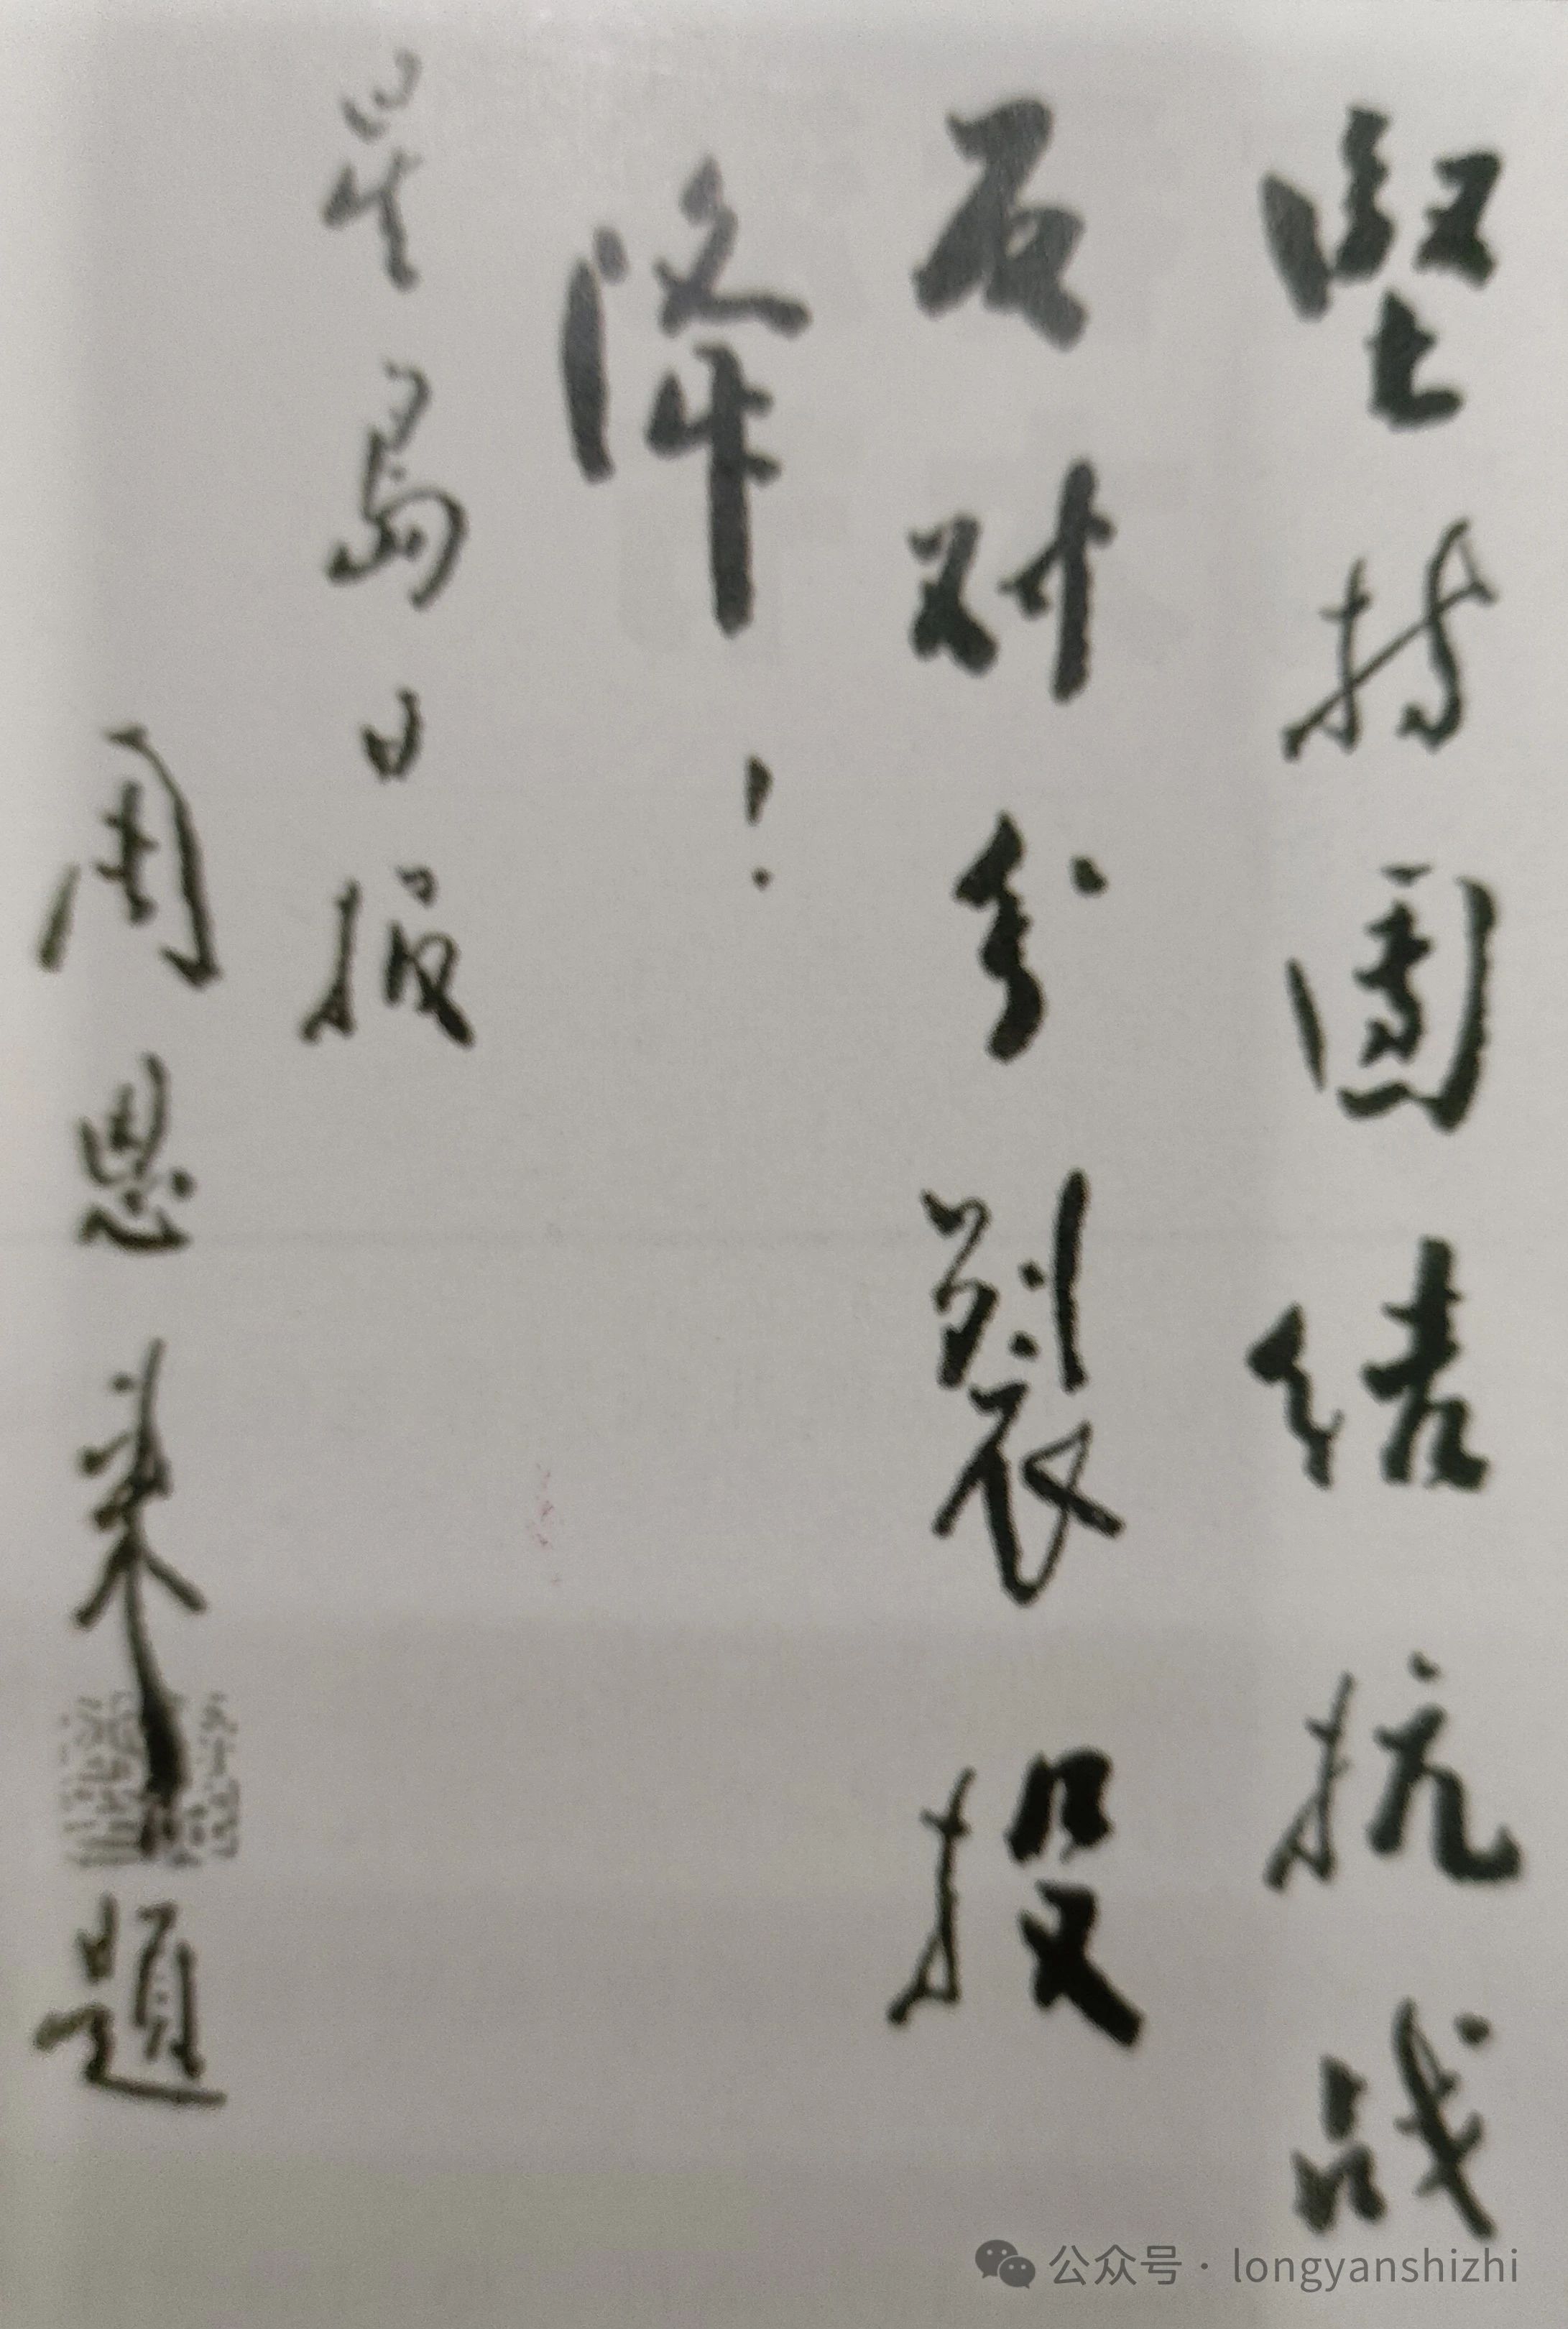 堅持團结抗战
反对分裂投
降！
星島日报
周恩来題
公众号 · longyanshizhi